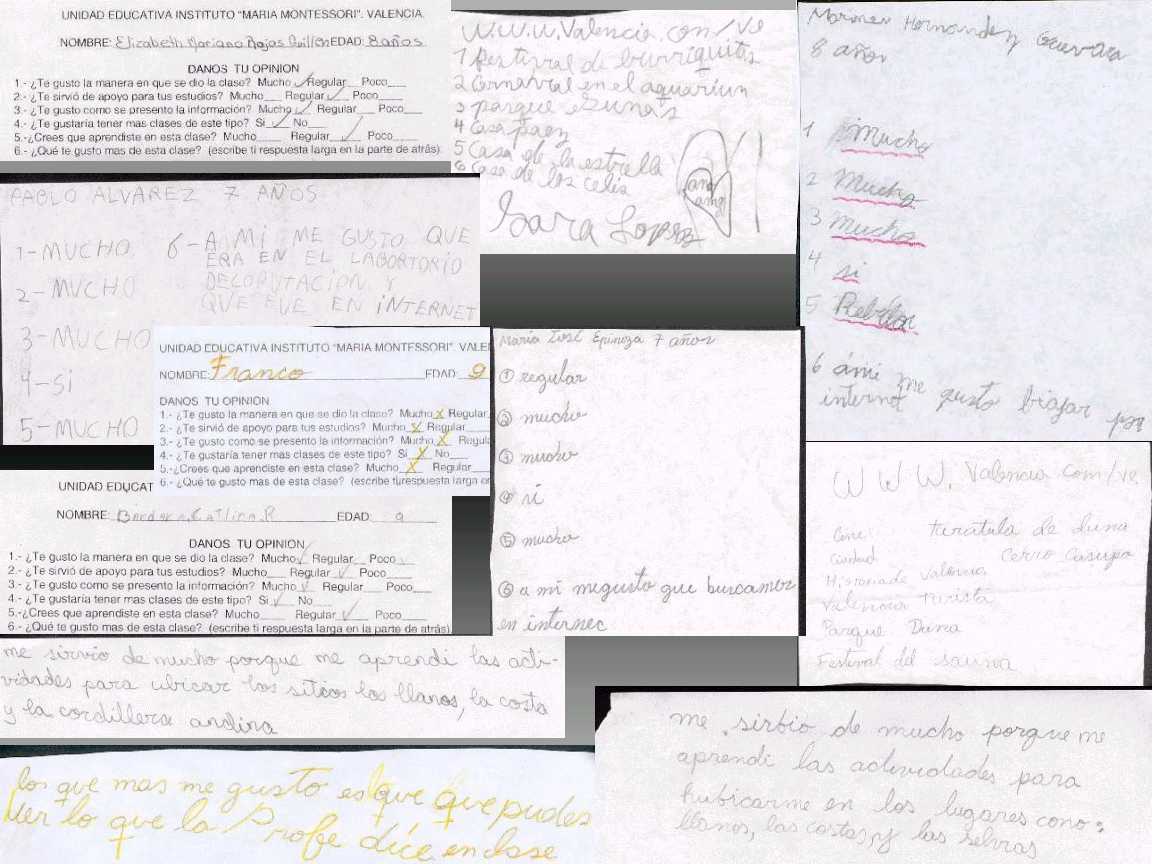 UNIDAD EDUCATIVA INSTITUTO "MARIA MONTESSORI". VALENCIA.
NOMBRE: Elizabeth Mariana Rojas Guillen EDAD: 8 años
DANOS TU OPINION
1.- ¿Te gusto la manera en que se dio la clase? Mucho Regular Poco
2.- ¿Te sirvió de apoyo para tus estudios? Mucho Regular Poco
3.- ¿Te gusto como se presento la información? Mucho Regular Poco
4.- ¿Te gustaría tener mas clases de este tipo? Si No
5.- ¿Crees que aprendiste en esta clase? Mucho Regular Poco
6.- ¿Qué te gusto mas de esta clase? (escribe ti respuesta larga en la parte de atrás).
W.W.W.Valencia.con/ve
1 Festival de burriquitas
2 Carnaval en el aquariun
3 parque
4 Casa paez
5 Casa de la estrella
6 Casa de los celis
Sara Lopez
Hernandez Guevara
8 años
1 Mucho
2 Mucho
3 Mucho
4 si
5
6 ámi me gusto biajar por
internet
PABLO ALVAREZ 7 AÑOS
1-MUCHO
2-MUCHO
3-MUCHO
4-Si
5-MUCHO
6-A Mi ME GUSTO QUE
ERA EN EL LABORTORIO
DECOPUTACION Y
QUE FUE EN iNTERNET
UNIDAD EDUCATIVA INSTITUTO "MARIA MONTESSORI". VALEN
NOMBRE: Franco EDAD: 9
DANOS TU OPINION
1.- ¿Te gusto la manera en que se dio la clase? Mucho X Regular
2.- ¿Te sirvió de apoyo para tus estudios? Mucho X Regular
3.- ¿Te gusto como se presento la información? Mucho X Regula
4.- ¿Te gustaría tener mas clases de este tipo? Si X No
5.-¿Crees que aprendiste en esta clase? Mucho X Regular
6.- ¿Qué te gusto mas de esta clase? (escribe ti respuesta larga en
Maria José Epinoza 7 años
1 regular
2 mucho
3 mucho
4 si
5 mucho
6 a mi megusto que buscamos
en internec
W W W. Valencia com/ve
Cerro Casupo
Historia de Valencia
Valencia turista
Parque Duna
Festival del
UNIDAD EDUCAT
NOMBRE: EDAD: 9
DANOS TU OPINION
1.- ¿Te gusto la manera en que se dio la clase? Mucho Regular Poco
2.- ¿Te sirvió de apoyo para tus estudios? Mucho Regular Poco
3.- ¿Te gusto como se presento la información? Mucho Regular Poco
4.- ¿Te gustaría tener mas clases de este tipo? Si No
5.-¿Crees que aprendiste en esta clase? Mucho Regular Poco
6.- ¿Qué te gusto mas de esta clase? (escribe ti respuesta larga en la parte de atrás).
me sirvio de mucho porque me aprendi las acti-
vidades para ubicar los sitios los llanos, la costa
y la cordillera andina
los que mas me gusto es que que pudes
ver lo que la Profe díce en clase
me sirbio de mucho porque me
aprendi las actividades para
hubicarme en los lugares como:
llanos, las costas, y las selvas